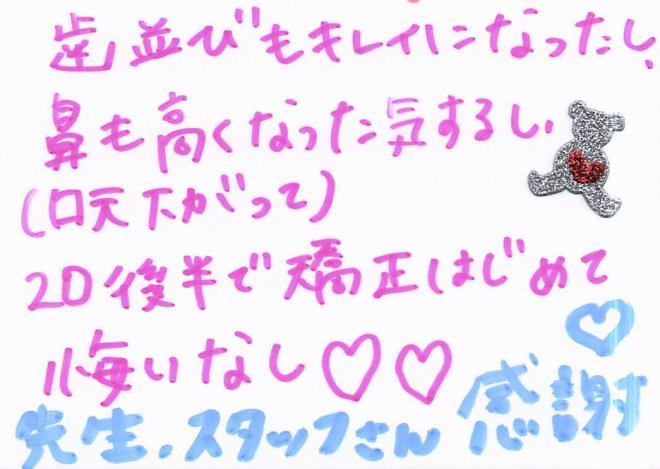 歯並びもキレイになったし、
鼻も高くなった気するし
(口元下がって)
20後半で矯正はじめて
悔いなし♡♡
先生.スタッフさん 感謝♡